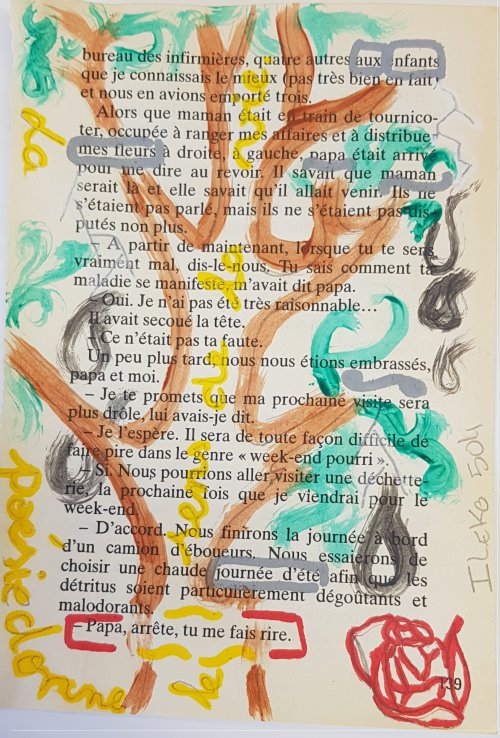 bureau des infirmières, quatre autres aux enfants
que je connaissais le mieux (pas très bien en fait)
et nous en avions emporté trois.
Alors que maman était en train de tournico-
ter, occupée à ranger mes affaires et à distribuer
mes fleurs à droite, à gauche, papa était arrivé
pour me dire au revoir. Il savait que maman
serait là et elle savait qu'il allait venir. Ils ne
s'étaient pas parlé, mais ils ne s'étaient pas dis-
putés non plus.
– A partir de maintenant, lorsque tu te sens
vraiment mal, dis-le-nous. Tu sais comment ta
maladie se manifeste, m'avait dit papa.
– Oui. Je n'ai pas été très raisonnable…
Il avait secoué la tête.
– Ce n'était pas ta faute.
Un peu plus tard, nous nous étions embrassés,
papa et moi.
– Je te promets que ma prochaine visite sera
plus drôle, lui avais-je dit.
– Je l'espère. Il sera de toute façon difficile de
faire pire dans le genre « week-end pourri ».
– Si. Nous pourrions aller visiter une déchette-
rie, la prochaine fois que je viendrai pour le
week-end.
– D'accord. Nous finirons la journée à bord
d'un camion d'éboueurs. Nous essaierons de
choisir une chaude journée d'été afin que les
détritus soient particulièrement dégoûtants et
malodorants.
– Papa, arrête, tu me fais rire.
139
la
poésie donne